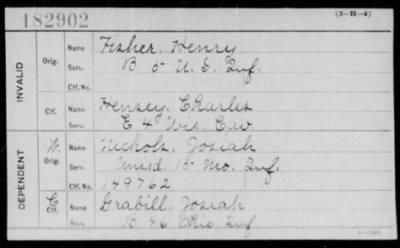 182902
(3-H-4)
INVALID
Orig.
Name Fisher, Henry
Serv. B 5 U. S. Inf.
Ctf. No.
Ctf.
Name Hensey, Charles
Serv. E 4 Wis. Cav
DEPENDENT
W. Orig.
Name Nichols, Josiah
Serv. Unasd. 15 Mo. Inf.
Ctf. No. 149762
C Ctf.
Name Grabill, Josiah
Serv. B 46 Ohio Inf